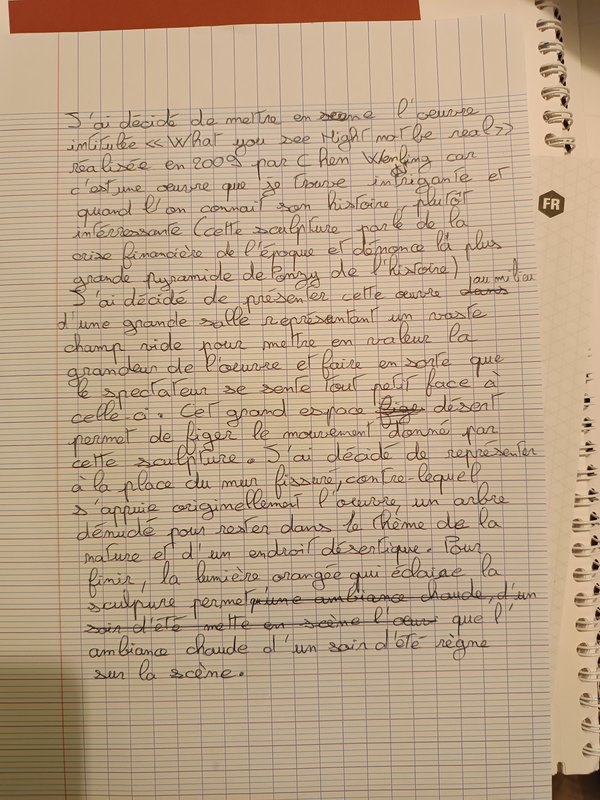 J'ai décidé de mettre en scène l'oeuvre
intitulée << What you see Might not be real >>
réalisée en 2009 par Chen Wenling car
c'est une oeuvre que je trouve intrigante et
quand l'on connait son histoire, plutôt
intérressante (cette sculpture parle de la
crise financière de l'époque et dénonce la plus
grande pyramide de Ponzy de l'histoire)
J'ai décidé de présenter cette oeuvre dans au milieu
d'une grande salle représentant un vaste
champ vide pour mettre en valeur la
grandeur de l'oeuvre et faire en sorte que
le spectateur se sente tout petit face à
celle ci. Cet grand espace fige désert
permet de figer le mouvement donné par
cette sculpture. J'ai décidé de représenter
à la place du mur fissuré, contre-lequel
s'appuie originellement l'oeuvre, un arbre
dénudé pour rester dans le thème de la
nature et d'un endroit désertique. Pour
finir, la lumière orangée qui éclaire la
sculpure permet qu'une ambiance chaude, d'un
soir d'été mette en scène l'oeuvr que l'
ambiance chaude d'un soir d'été règne
sur la scène.
FR